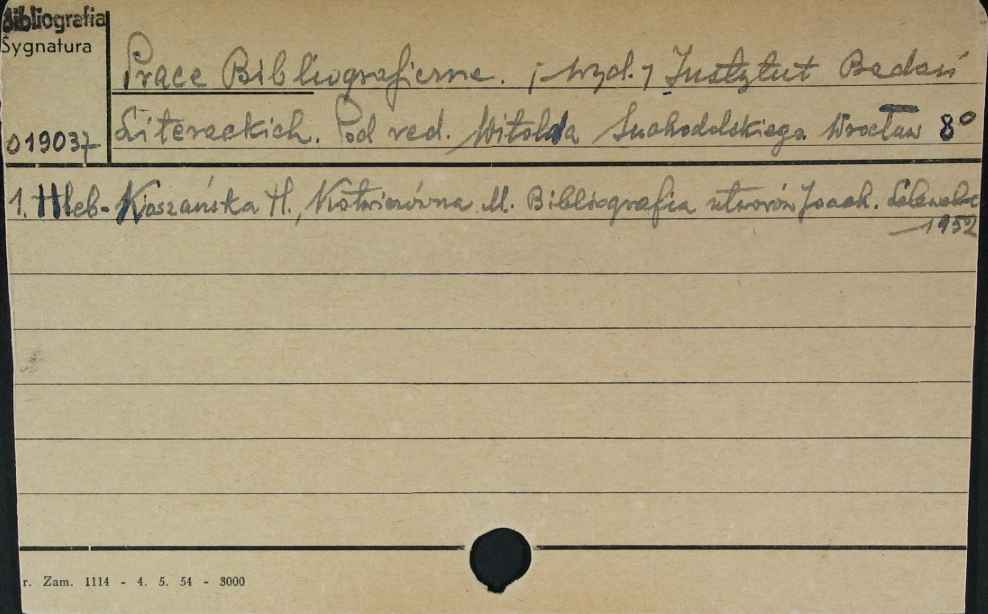 Bibliografia
Sygnatura
Prace Bibliograficzne. / wyd. / Instytut Badań
019037 Literackich. Pod red. Witolda Suchodolskiego Wrocław 8°
1. Hleb-Koszańska H., Kotwiczówna M. Bibliografia utworów Joach. Lelewela
1952
r. Zam. 1114 - 4. 5. 54 - 3000